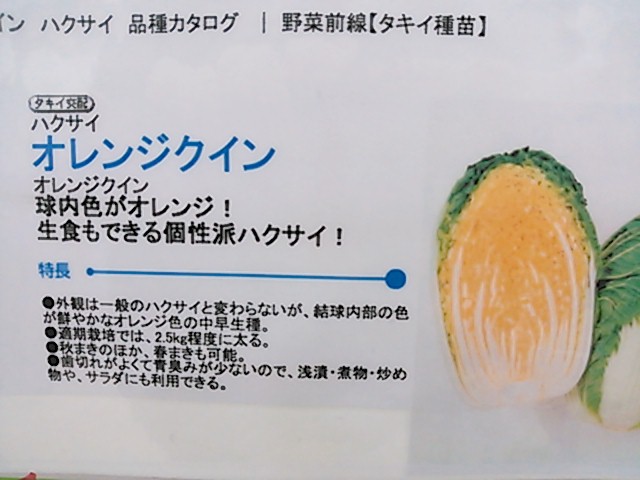 イン ハクサイ 品種カタログ | 野菜前線【タキイ種苗】
タキイ交配
ハクサイ
オレンジクイン
オレンジクイン
球内色がオレンジ！
生食もできる個性派ハクサイ！
特長
●外観は一般のハクサイと変わらないが、結球内部の色
が鮮やかなオレンジ色の中早生種。
●適期栽培では、2.5kg程度に太る。
●秋まきのほか、春まきも可能。
●歯切れがよくて青臭みが少ないので、浅漬・煮物・炒め
物や、サラダにも利用できる。